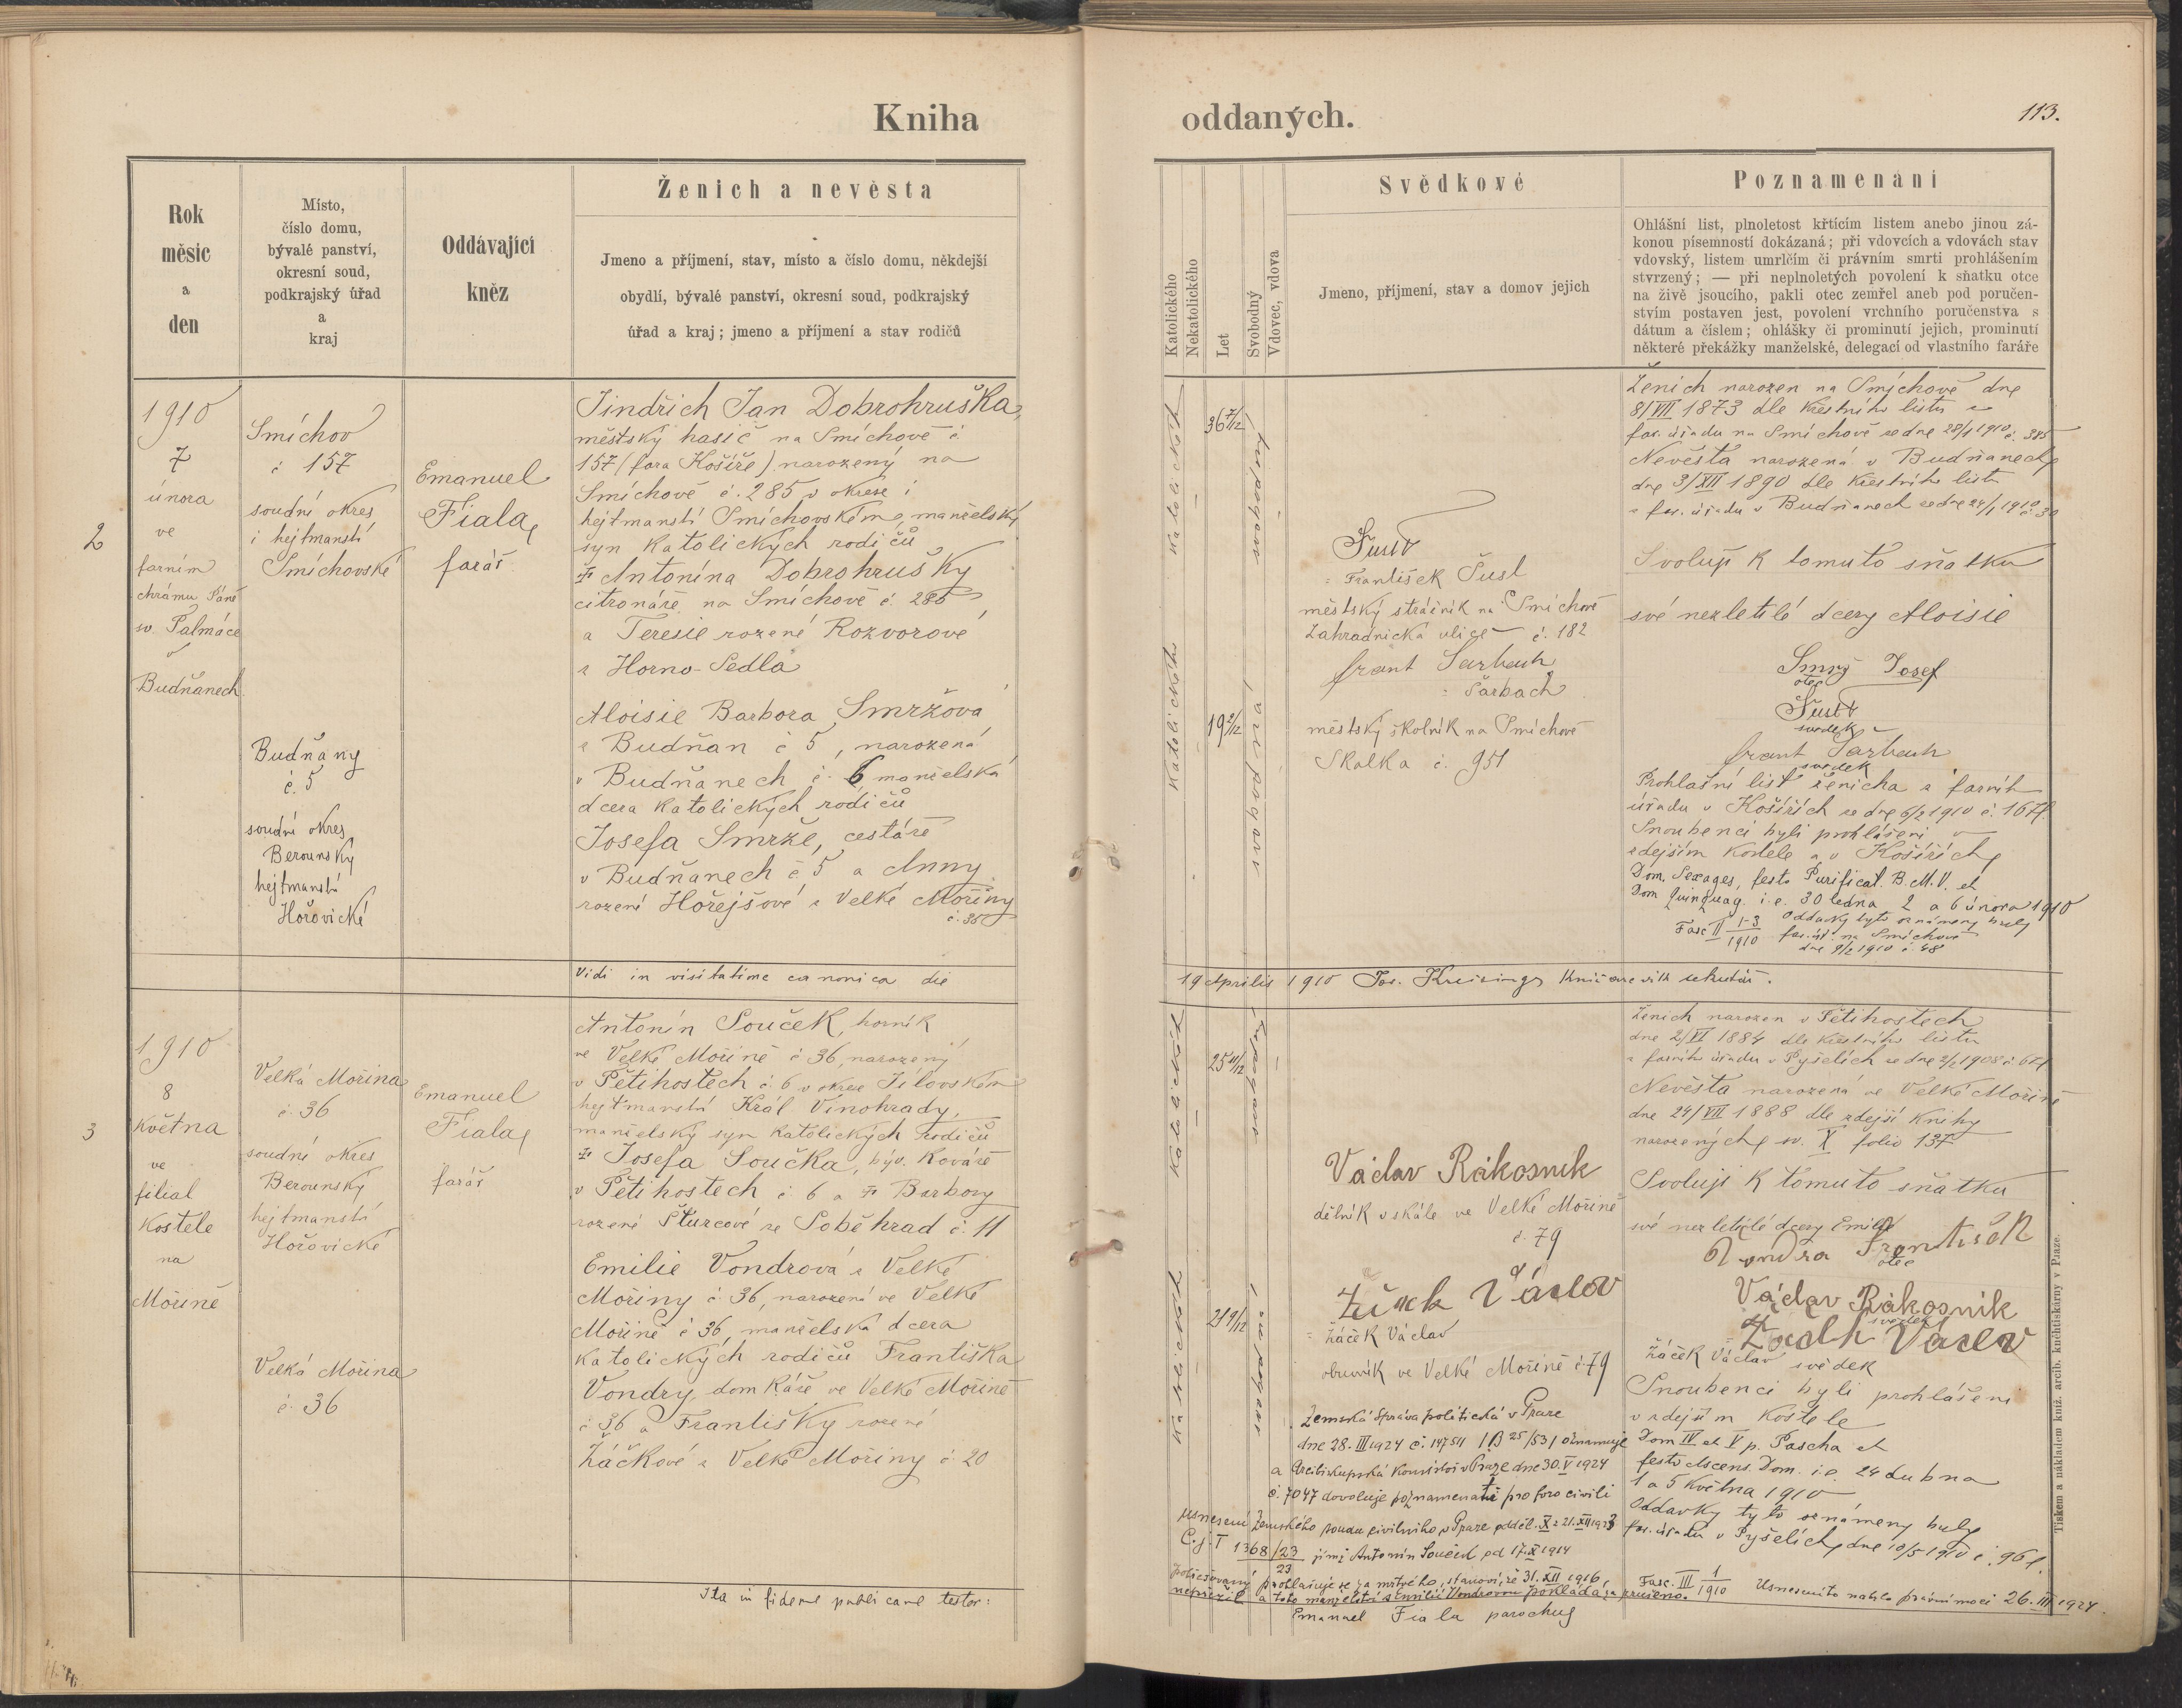 Kniha
Rok
měsíc
a
den
Místo,
číslo domu,
bývalé panství,
okresní soud,
podkrajský úřad
a
kraj
Oddávající
kněz
Ženich a nevěsta
Jmeno a příjmení, stav, místo a číslo domu, někdejší
obydlí, bývalé panství, okresní soud, podkrajský
úřad a kraj; jmeno a příjmení a stav rodičů
2
1910
7
února
ve
farním
chrámu Páně
sv. Palmáce
v
Budňanech
Smíchov
č 157
soudní okres
i hejtmanství
Smíchovské
Budňany
č. 5
soudní okres
Berounský
hejtmanství
Hořovické
Emanuel
Fiala,
farář
Jindřich Jan Dobrohruška,
městský hasič na Smíchově č
157 (fara Košíře) narozený na
Smíchově č. 285 v okrese i
hejtmanství Smíchovském, manželský
syn katolických rodičů
Antonína Dobrohrušky
citronáře na Smíchově č. 285
a Teresie rozené Rozvorové
z Horno-Sedla
Aloisie Barbora Smržova
z Budňan č 5, narozená
v Budňanech č. 6 manželská
dcera katolických rodičů
Josefa Smrže, cestáře
v Budňanech č 5 a Anny
rozené Hořejšové z Velké Mořiny
č. 38
Vidi in visitatione canonica die
3
1910
8
května
ve
filial
kostele
na
Mořině
Velká Mořina
č. 36
soudní okres
Berounský
hejtmanství
Hořovické
Velká Mořina
č. 36
Emanuel
Fiala,
farář
Antonín Souček, horník
ve Velké Mořině č 36, narozený
v Pětihostech č. 6 v okrese Jílovském
hejtmanství Král. Vinohrady,
manželský syn katolických rodičů
Josefa Součka, býv. kováře
v Pětihostech č. 6 a Barbory
rozené Šturcové ze Soběhrad č. 11
Emilie Vondrová z Velké
Mořiny č. 36, narozená ve Velké
Mořině č 36, manželská dcera
katolických rodičů Františka
Vondry, domkáře ve Velké Mořině
č 36 a Františky rozené
Žáčkové z Velké Mořiny č. 20
Ita in fidem publicam testor:
oddaných.
113.
Katolického
Nekatolického
Let
Svobodný
Vdovec, vdova
Svědkové
Jmeno, příjmení, stav a domov jejich
Poznamenání
Ohlášní list, plnoletost křtícím listem anebo jinou zá-
konou písemností dokázaná; při vdovcích a vdovách stav
vdovský, listem umrlčím či právním smrti prohlášením
stvrzený; — při neplnoletých povolení k sňatku otce
na živě jsoucího, pakli otec zemřel aneb pod poručen-
stvím postaven jest, povolení vrchního poručenstva s
dátum a číslem; ohlášky či prominutí jejich, prominutí
některé překážky manželské, delegací od vlastního faráře
katolického
36 7/12
svobodný
katolického
19 2/12
svobodná
Šust
= František Šust
městský strážník na Smíchově
Zahradnická ulice č. 182
Frant Sarbach
= Šarbach
městský školník na Smíchově
Skalka č. 951
Ženich narozen na Smíchově dne
8/VII 1873 dle křestního listu z
far. úřadu na Smíchově ze dne 28/1 1910 č. 385
Nevěsta narozená v Budňanech
dne 3/XII 1890 dle křestního listu
z far. úřadu v Budňanech ze dne 24/1 1910 č. 30
Svoluji k tomuto sňatku
své nezletilé dcery Aloisie
Smrž Josef
otec
Šust
svědek
Frant Sarbach
svědek
Prohlašní list ženicha z farního
úřadu v Košířích ze dne 6/2 1910 č. 167
Snoubenci byli prohlášeni v
zdejším kostele a v Košířích
Dom. Sexages, festo Purificat. B. M. V. et
Dom Quinquag. i. e. 30 ledna, 2 a 6 února 1910
Fasc II 1-3/1910 Oddavky tyto oznámeny byly
far. úř. na Smíchově
dne 9/2 1910 č. 48
19 Aprilis 1910 Jos. Kreisinger kníž. arc. vik. sekretář.
katolického
25 11/12
svobodný
katolického
21 9/12
svobodná
Václav Rákosník
dělník v skále ve Velké Mořině
č. 79
Žáček Václav
= Žáček Václav
obuvník ve Velké Mořině č 79
Ženich narozen v Pětihostech
dne 2/VI 1884 dle křestního listu
z farního úřadu v Pyšelích ze dne 2/2 1908 č. 67
Nevěsta narozená ve Velké Mořině
dne 24/VII 1888 dle zdejší knihy
narozených sv. X folio 137
Svoluji k tomuto sňatku
své nezletilé dcery Emilie
Vondra František
otec
Václav Rákosník
svědek
Žáček Václav
Žáček Václav svědek
Snoubenci byli prohlášeni
v zdejším kostele
Dom IV et V p. Pascha et
festo Ascens. Dom. i. e. 24 dubna
1 a 5 května 1910
Oddavky tyto oznámeny byly
far. úřadu v Pyšelích dne 10/5 1910 č. 96
Zemská správa politická v Praze
dne 28. III 1924 č. 14754 (B 25/53) oznamuje
a Arcibiskupská konsistoř v Praze dne 30. V 1924
č. 7047 dovoluje poznamenati pro foro civili
usnesení Zemského soudu civilního v Praze odděl. X z 21. XII 1923
Č. j. T 1368/23 jímž Antonín Souček od 17. X 1914
23
pohřešovaný prohlašuje se za mrtvého, stanoví, že 31. XII 1916
nepřežil a toto manželství s Emilií Vondrovou pokládá za zrušeno.
Fasc. III 1/1910 Usnesení to nabylo právní moci 26. III 1924.
Emanuel Fiala parochus
Tiskem a nákladem kníž. arcib. knihtiskárny v Praze.